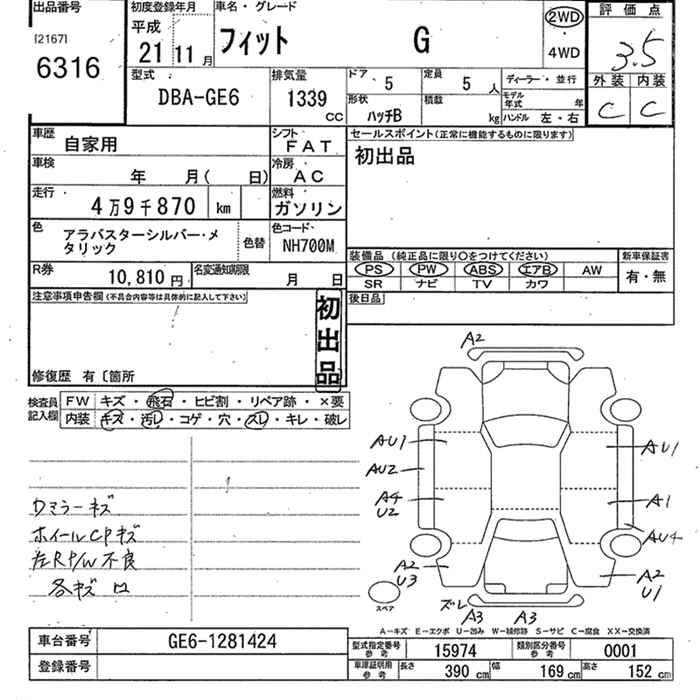 出品番号
[2167]
6316
初度登録年月
平成
21 11月
車名・グレード
フィット G
2WD
・
4WD
評価点
3.5
外装 内装
C C
型式
DBA-GE6
排気量
1339
CC
ドア・ 5
定員 5 人
形状・ ハッチB
積載 kg
ディーラー・並行
モデル年式 年
ハンドル 左・右
車歴
自家用
シフト
FAT
車検
年 月( 日)
冷房・
AC
走行・
4万9千870 km
燃料
ガソリン
色
アラバスターシルバー・メ
タリック
色替
色コード・
NH700M
R券
10,810円
名変通知期限
月 日
セールスポイント(正常に機能するものに限ります)
初出品
装備品 (純正品に限り〇をつけてください)
PS PW ABS エアB AW
SR ナビ TV カワ
新車保証書
有・無
後日品
注意事項申告欄(不具合内容等は具体的に記入して下さい)
初出品
修復歴 有〔箇所
検査員
記入欄
FW キズ・飛石・ヒビ割・リペア跡・×要
内装 キズ・汚レ・コゲ・穴・スレ・キレ・破レ
ウマラーキズ
ホイールCPキズ
左RP/W不良
各キズ ロ
A2
AU1
AU2
A4
U2
A2
U3
AU1
A1
AU4
A2
U1
スペア
ズレ
A3 A3
A-キズ E-エクボ U-凹み W-補修跡 S-サビ C-腐食 XX-交換済
車台番号
GE6-1281424
登録番号
型式指定番号
参考
15974
類別区分番号
参考
0001
車庫証明用
参考
長さ 390 cm
幅 169 cm
高さ 152 cm